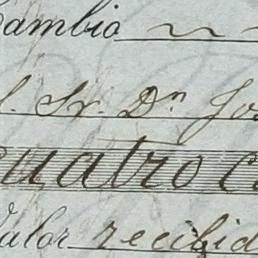 ambio
l. Sr. Dn Jos
cuatro c
Valor recibid